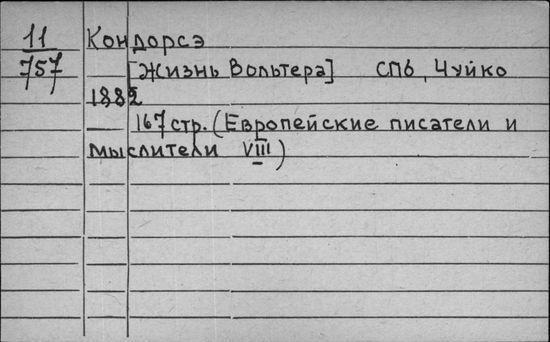 11 Кондорсэ
757 [Жизнь Вольтера] СПб, Чуйко
1882
— 167 стр. (Европейские писатели и
мыслители VIII)